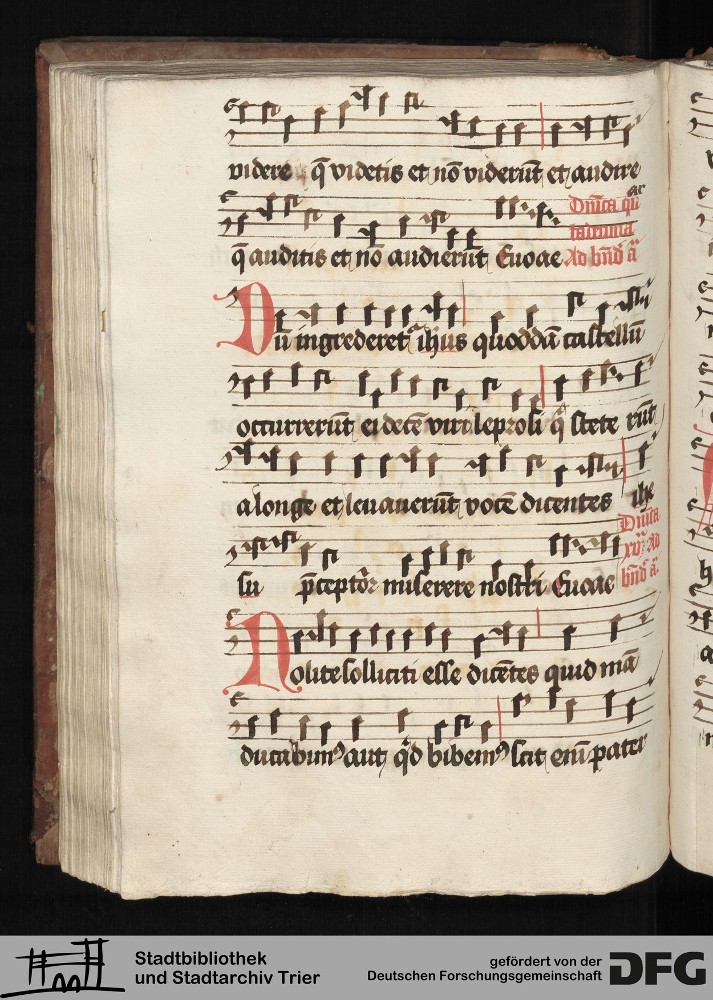 videre q̄ videtis et nō viderūt et audire
Dn̄ica qͣr
tadecima
q̄ auditis et nō audierūt Euoae Ad bn̄d̄ a͞
Dū ingrederet᷑ ih̄us quoddā castellū
occurrerūt ei decē viri leprosi qͥ stete rūt
a longe et leuauerūt vocē dicentes ihe
Dn̄ica
xv Ad
su p̄ceptor miserere nostri Euoae bn̄d̄ a͞
Nolite solliciti esse dicētes quid mā
ducabimꝰ aut qͥd bibemꝰ scit enī pater
Stadtbibliothek
und Stadtarchiv Trier
gefördert von der
Deutschen Forschungsgemeinschaft DFG